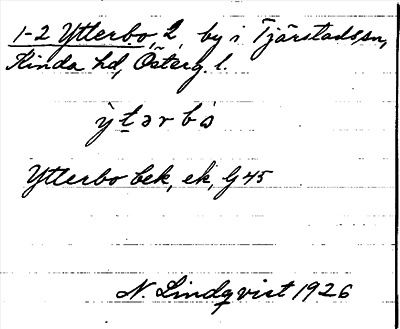 1-2 Ytterbo, 2, by i Tjärstads sn,
Kinda hd, Österg. l.
ỳtərbò
Ytterbo bek, ek, G 45
N. Lindqvist 1926